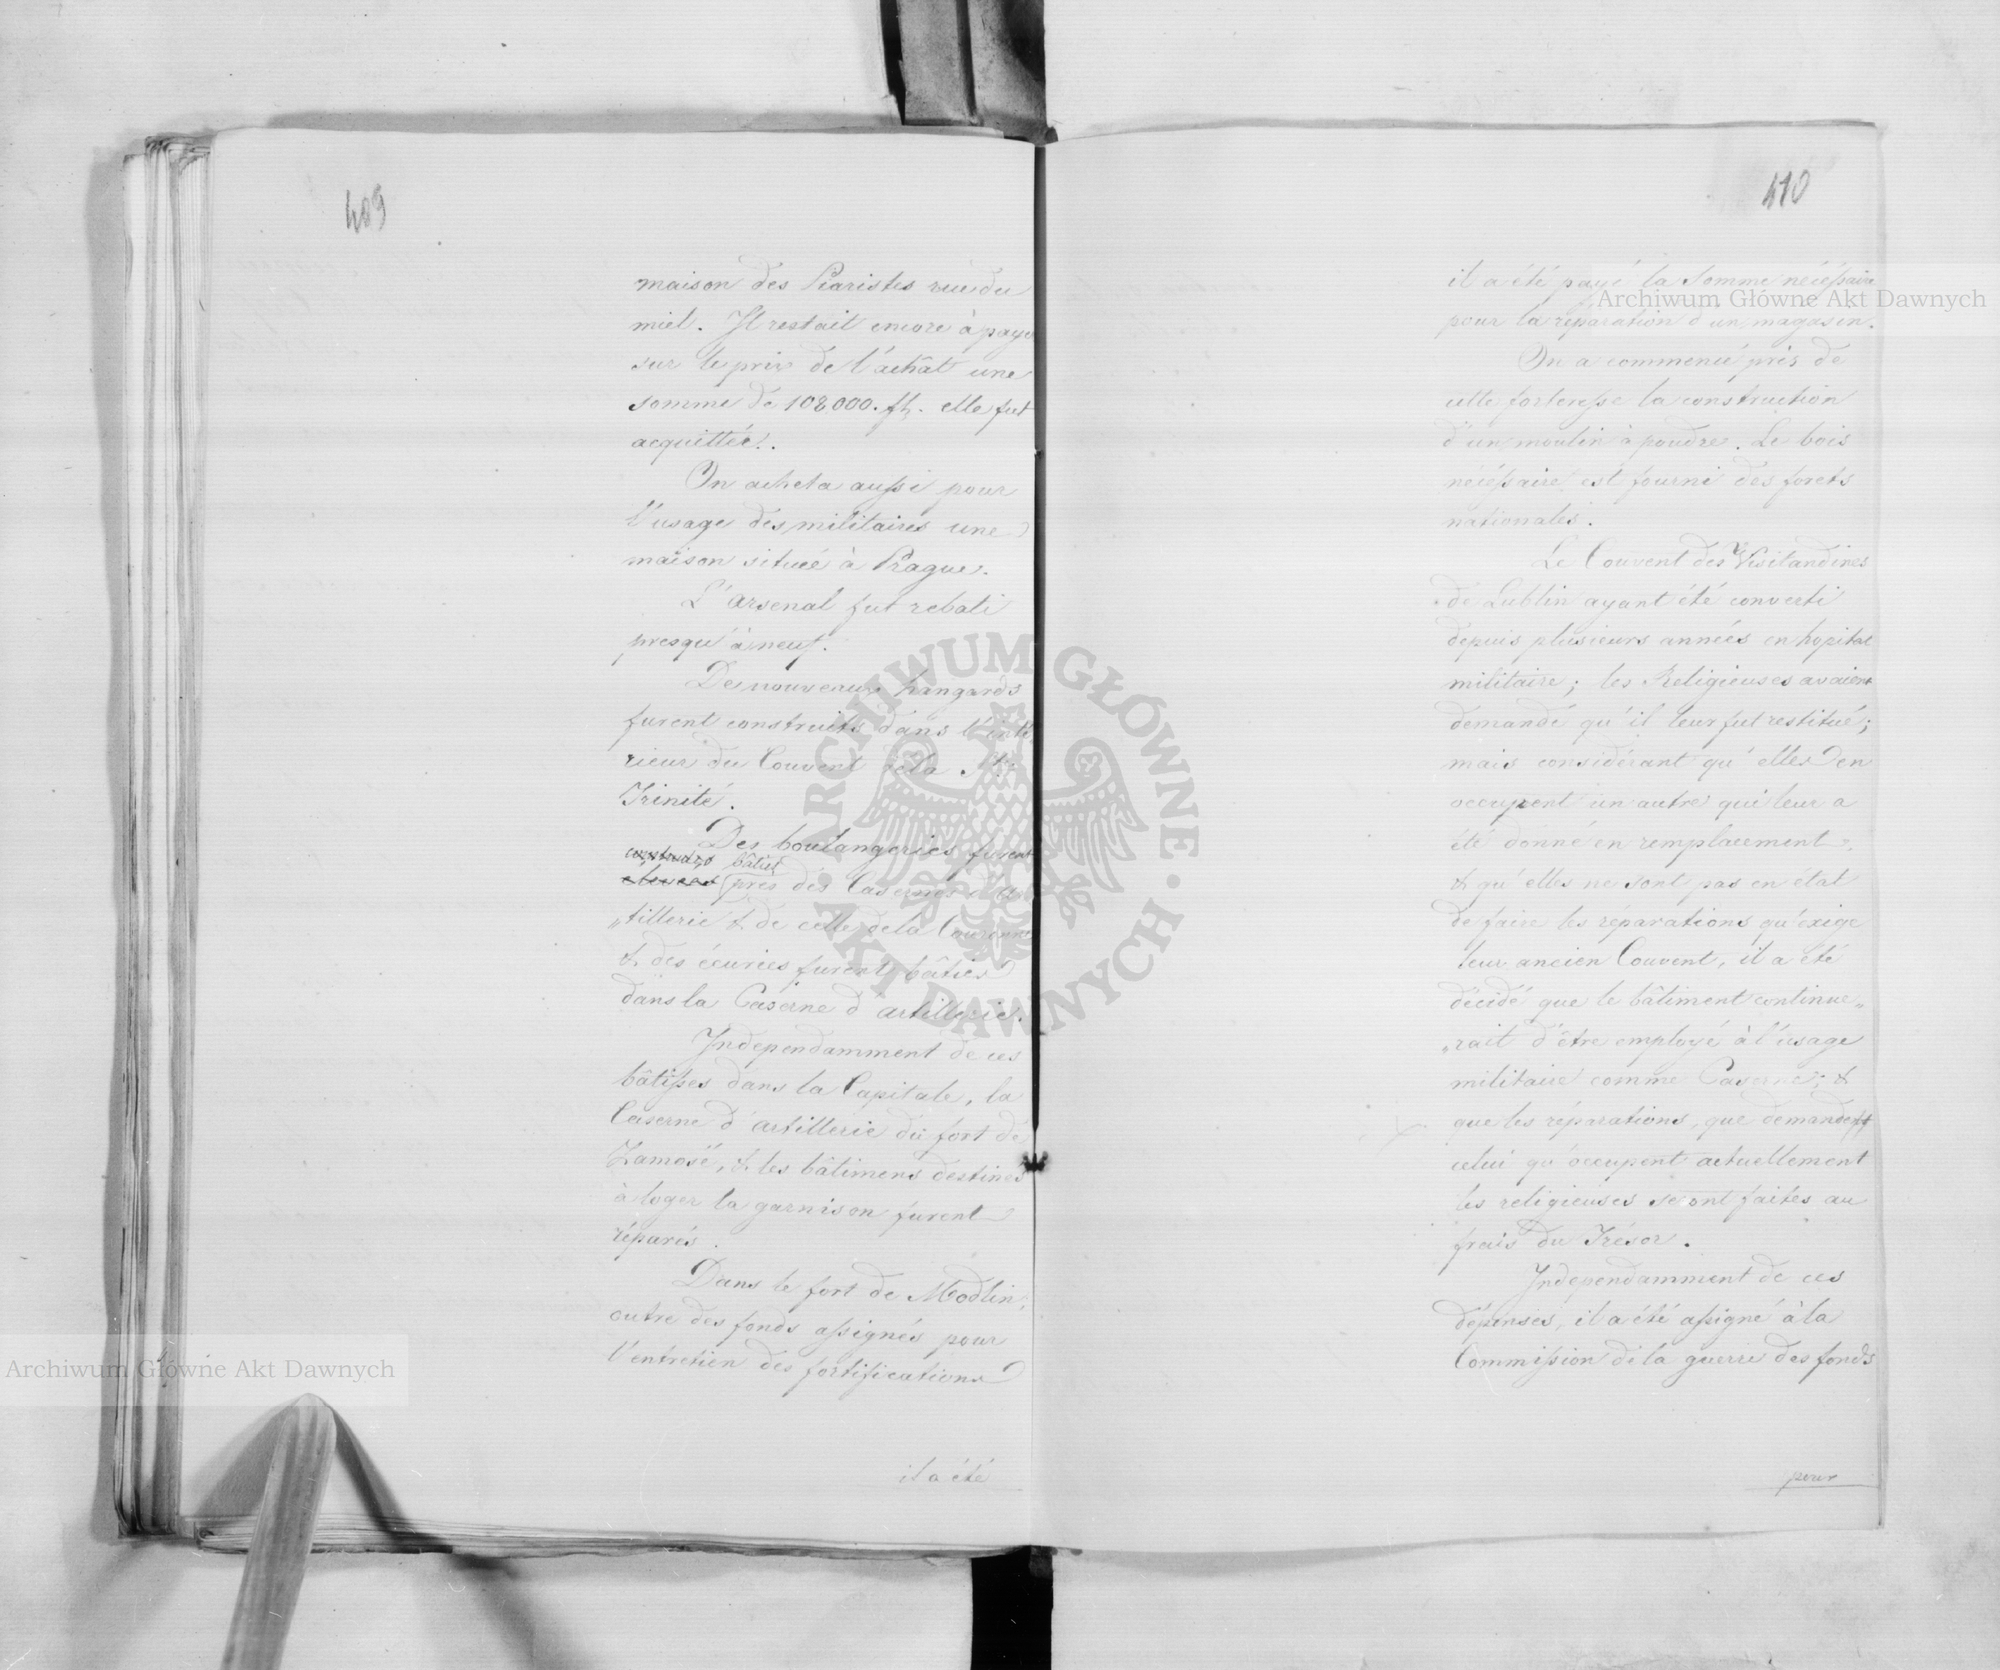 409
maison des Piaristes rue du
miel. Il restait encore à payer
sur le prix de l'achât une
somme de 108,000. fl. elle fut
acquittée.
On acheta aussi pour
l'usage des militaires une
maison situeé à Prague.
L'Arsenal fut rebati
presqu'à neuf.
De nouveaux hangards
furent construits dans l'inté-
rieur du Couvent de la Ste
Trinité.
Des boulangeries furent
construits bâties
elevees près des Casernes d'ar-
„tillerie & de celle de la Couronne
& des écuries furent bâties
dans la Caserne d'artillerie.
Independamment de ces
bâtisses dans la Capitale, la
Caserne d'artillerie du fort de
Zamosć, & les bâtimens destinés
à loger la garnison furent
réparés.
Dans le fort de Modlin,
outre des fonds assignés pour
l'entretien des fortifications
il a été
410
il a été payé la somme nécéssaire
pour la réparation d'un magasin.
On a commencé près de
cette forteresse la construction
d'un moulin à poudre. Le bois
nécéssaire est fourni des forets
nationales.
Le Couvent des Visitandines
de Lublin ayant été converti
depuis plusieurs années en hopital
militaire; les Religieuses avaient
demandé qu'il leur fut restitué;
mais considérant qu'elles en
occupent un autre qui leur a
été donné en remplacement,
& qu'elles ne sont pas en état
de faire les réparations qu'exige
leur ancien Couvent, il a été
décidé que le bâtiment continue„
„rait d'être employé à l'usage
militaire comme Caserne; &
que les réparations, que demandent
celui qu'occupent actuellement
les religieuses seront faites au
frais du Trésor.
Independamment de ces
dépenses, il a été assigné à la
Commission de la guerre des fonds
pour
Archiwum Główne Akt Dawnych
Archiwum Główne Akt Dawnych
ARCHIWUM GŁÓWNE
AKT DAWNYCH